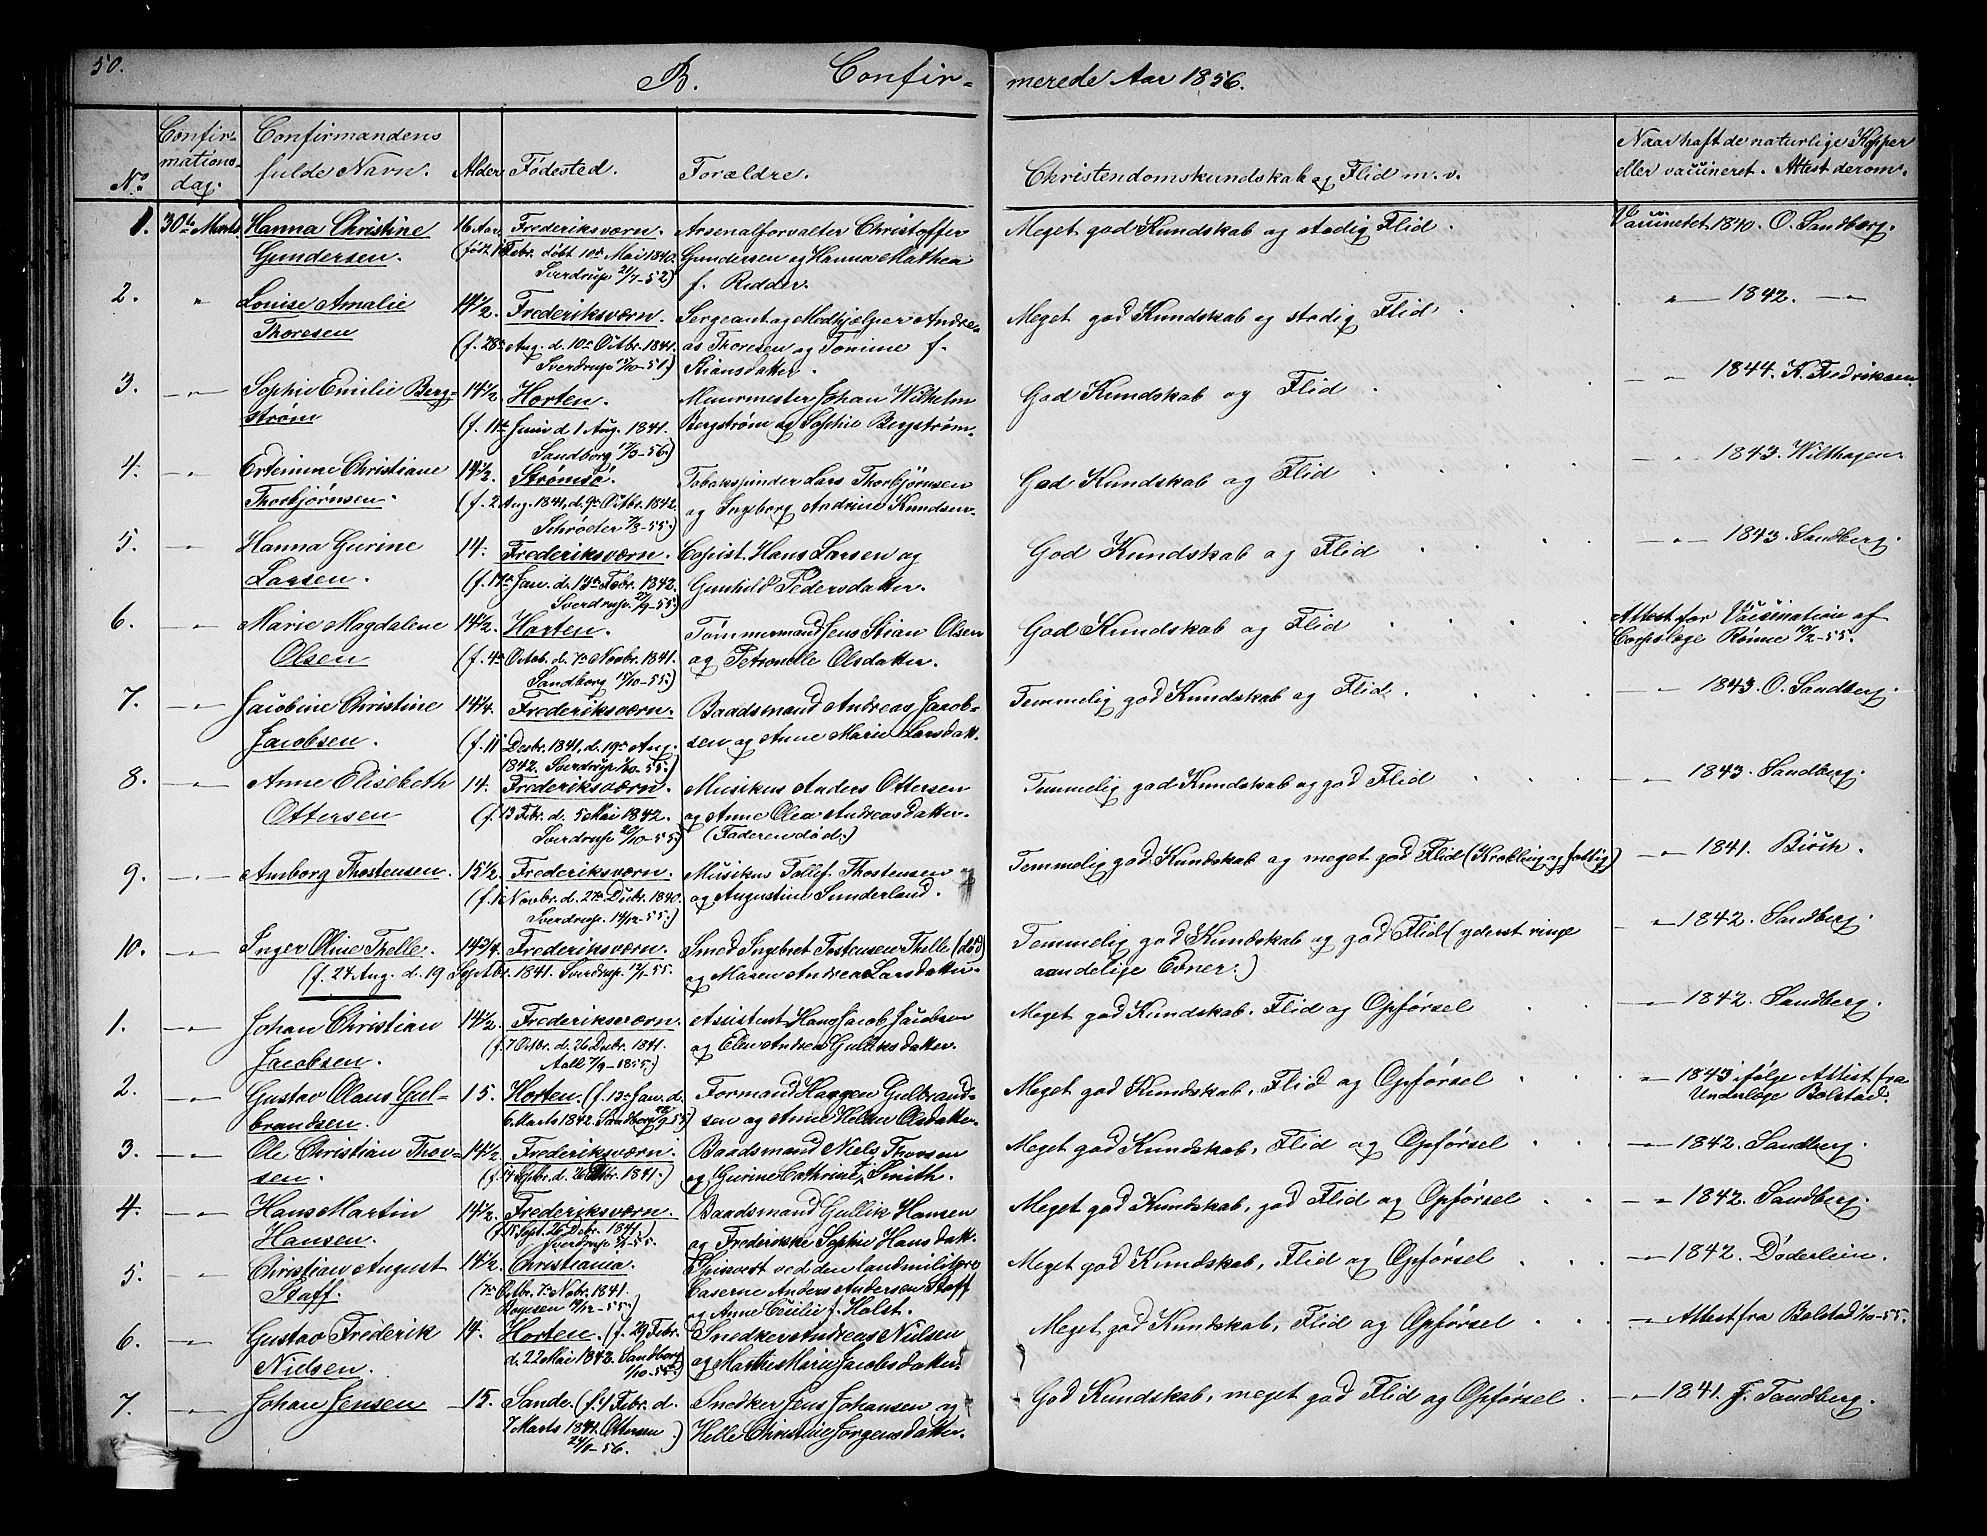 50.
B. Confir-
merede Aar 1856.
No
Confir-
mations-
dag.
Confirmandens
fulde Navn.
Alder
Fødested.
Forældre.
Christendomskundskab og Flid m. v.
Naar haft de naturlige Kopper
eller vaccineret. Attest derom.
1. 30te Marts Hanna Christine 16 Aar. Frederiksværn. Arsenalforvalter Christoffer Meget god Kundskab og stadig Flid. Vaccineret 1840. O. Sandberg.
Gundersen. Febr. døbt 10de Mai 1840. Gundersen og Hanna Mathea
Sverdrup 21/7-52) f. Ridder.
2. " Louise Amalie 14 1/2 Frederiksværn. Sergeant og Medhjælper Andre- Meget god Kundskab og stadig Flid - " - 1842. - " -
Thoresen (f. 28de Aug. d. 10de Octbr. 1841. as Thoresen og Tomine f.
Sverdrup 17/10-51) Stiansdatter.
3. - " - Sophie Emilie Berg- 14 1/2 Horten. Muurmester Johan Wilhelm God Kundskab og Flid - " - 1844. K. Fredriksen
strøm (f. 11te Juni d. 1 Aug. 1841. Bergstrøm og Sophie Bergstrøm.
Sandborg 17/3-56)
4. - " - Christiane 14 1/2. Strømsø. Tobakspinder Lars Thorbjørnsen God Kundskab og Flid - " - 1843. Wilthagen.
Thorbjørnsen. (f. 2 Aug. 1841, d. 9de Octbr. 1842. og Ingeborg Andrine Knudsen.
Schrøeter 7/3-55.)
5. - " - Hanna Gurine 14. Frederiksværn. Copist Hans Larsen og God Kundskab og Flid - " - 1843. Sandberg.
Larsen. (f. 17de Jan. d. 14de Febr. 1842. Gunhild Pedersdatter.
Sverdrup. 27/9-55.)
6. - " - Marie Magdalene 14 1/2 Horten. Tømmermand Jens Stian Olsen God Kundskab og Flid Attest for Vaccination af
Olsen (f. 4de Octob. d. 7de Novbr. 1841. og Petronelle Olsdatter. Corpslæge Røme 10/2-55.
Sandborg 17/10-55)
7. - " - Jacobine Christine 14 1/4. Frederiksværn. Baadsmand Andreas Jacob- Temmelig god Kundskab og Flid. - " - 1843. O. Sandberg.
Jacobsen. (f. 11 Decbr. 1841, d. 19de Aug. sen og Anne Marie Larsdatt.
1842. Sverdrup 1/10-55.)
8. - " - Anne Elisebeth 14. Frederiksværn. Musikus Anders Ottersen Temmelig god Kundskab og god Flid - " - 1843. Sandberg.
Ottersen (f. 13 Febr. d. 5 Mai 1842. og Anne Olea Andreasdatter.
Sverdrup 29/10-55) (Faderen død.)
9. - " - Amborg Thostensen. 15 1/2 Frederiksværn. Musikus Tollef Thostensen Temmelig god Kundskab og meget god Flid (Krøbling og fattig) - " - 1841. Biöih.
Novbr. d. 27de Decbr. 1840. og Augustine Sunderland.
Sverdrup. 14/12-55.)
10. - " - Inger Oline Thelle. 14 3/4. Frederiksværn. Smed Ingebret Tostensen Thelle (død) Temmelig god Kundskab og god Flid (yderst ringe - " - 1842. Sandberg.
(f. 24 Aug. d. 19 Septbr. 1841. Sverdrup. 55. og Maren Andrea Larsdatter. aandelige Evner.)
1. - " - Johan Christian 14 1/2 Frederiksværn. Assistent Hans Jacob Jacobsen Meget god Kundskab, Flid og Opførsel - " - 1842. Sandberg.
Jacobsen. (f. 7 Octbr. d. 26 Decbr. 1841. og Elen Andrea Gulliksdatter.
Aall 7/9-1855.)
2. - " - Gustav Olaus Gul- 15. Horten. (f. 13de Jan. d. Formand Haagen Gulbrand- Meget god Kundskab, Flid og Opførsel - " - 1843 ifølge Attest fra
brandsen. 6 Marts 1842. Sandberg 55) sen og Anne Helene Olsdatter. Underlæge Bolstad.
3. - " - Ole Christian Thor- 14 1/2 Frederiksværn. Baadsmand Niels Thorsen Meget god Kundskab, Flid og Opførsel - " - 1842. Sandberg.
sen. (f. 14 Septbr. d. 26 Decbr. 1841.) og Gurine Cathrine f. Smith.
4. - " - Hans Martin 14 1/2 Frederiksværn. Baadsmand Gullik Hansen Meget god Kundskab, god Flid og Opførsel - " - 1842. Sandberg.
Hansen. (f. 15 Sept. 26 Decbr. 1841. og Frederikke Sophie Hansdatt.
Sverdrup 55.
5. - " - Christian August 14 1/2. Christiania. Spisevert ved den landmilitære Meget god Kundskab, Flid og Opførsel - " - 1842. Døderlein.
Staff. (7de Octbr. 7de Nobr. 1841. Caserne Anders Andersen Staff
12-55.) og Anne Cecilie f. Holst.
6. - " - Gustav Frederik 14. Horten. (f. 29 Febr. Snedker Andreas Nielsen Meget god Kundskab, Flid og Opførsel - " - Attest fra Bolstad 1/10-55.
Nielsen. d. 22 Mai 1842. Sandborg og Marthe Marie Jacobsdatter.
1/10-55.)
7. - " - Johan Jensen 15. Sande. (f. 1 Febr. d. Snedker Jens Johansen og God Kundskab, meget god Flid og Opførsel - " - 1841. J. Sandberg.
7 Marts 1841. Ottersen Helle Christine Jørgensdatter.
24/1-56.